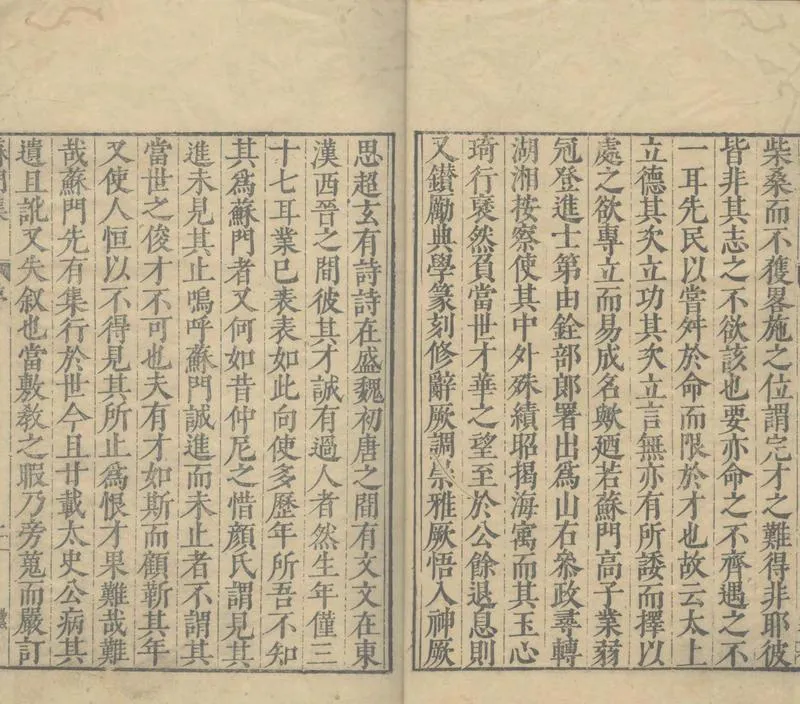 柴桑而不獲畧施之位謂完才之難得非耶彼
皆非其志之不欲該也要亦命之不齊遇之不
一耳先民以嘗舛於命而限於才也故云太上
立德其次立功其次立言無亦有所諉而擇以
處之欲專立而易成名歟廼若蘇門高子業蒻
冠登進士第由銓部郎署出為山右叅政尋轉
湖湘按察使其中外殊績昭揭海寓而其玉心
琦行褎然負當世才華之望至於公餘退息則
又鑚勵典學篆刻修辭厥調崇雅厥悟入神厥
思超玄有詩詩在盛魏初唐之間有文文在東
漢西晉之間彼其才誠有過人者然生年僅三
十七耳業已表表如此向使多歷年所吾不知
其為蘇門者又何如昔仲尼之惜顏氏謂見其
進未見其止嗚呼蘇門誠進而未止者不謂其
當世之俊才不可也夫有才如斯而顧靳其年
又使人恒以不得見其所止為恨才果難哉難
哉蘇門先有集行於世今且廿載太史公病其
遺且訛又失叙也當敷教之暇乃旁蒐而嚴訂